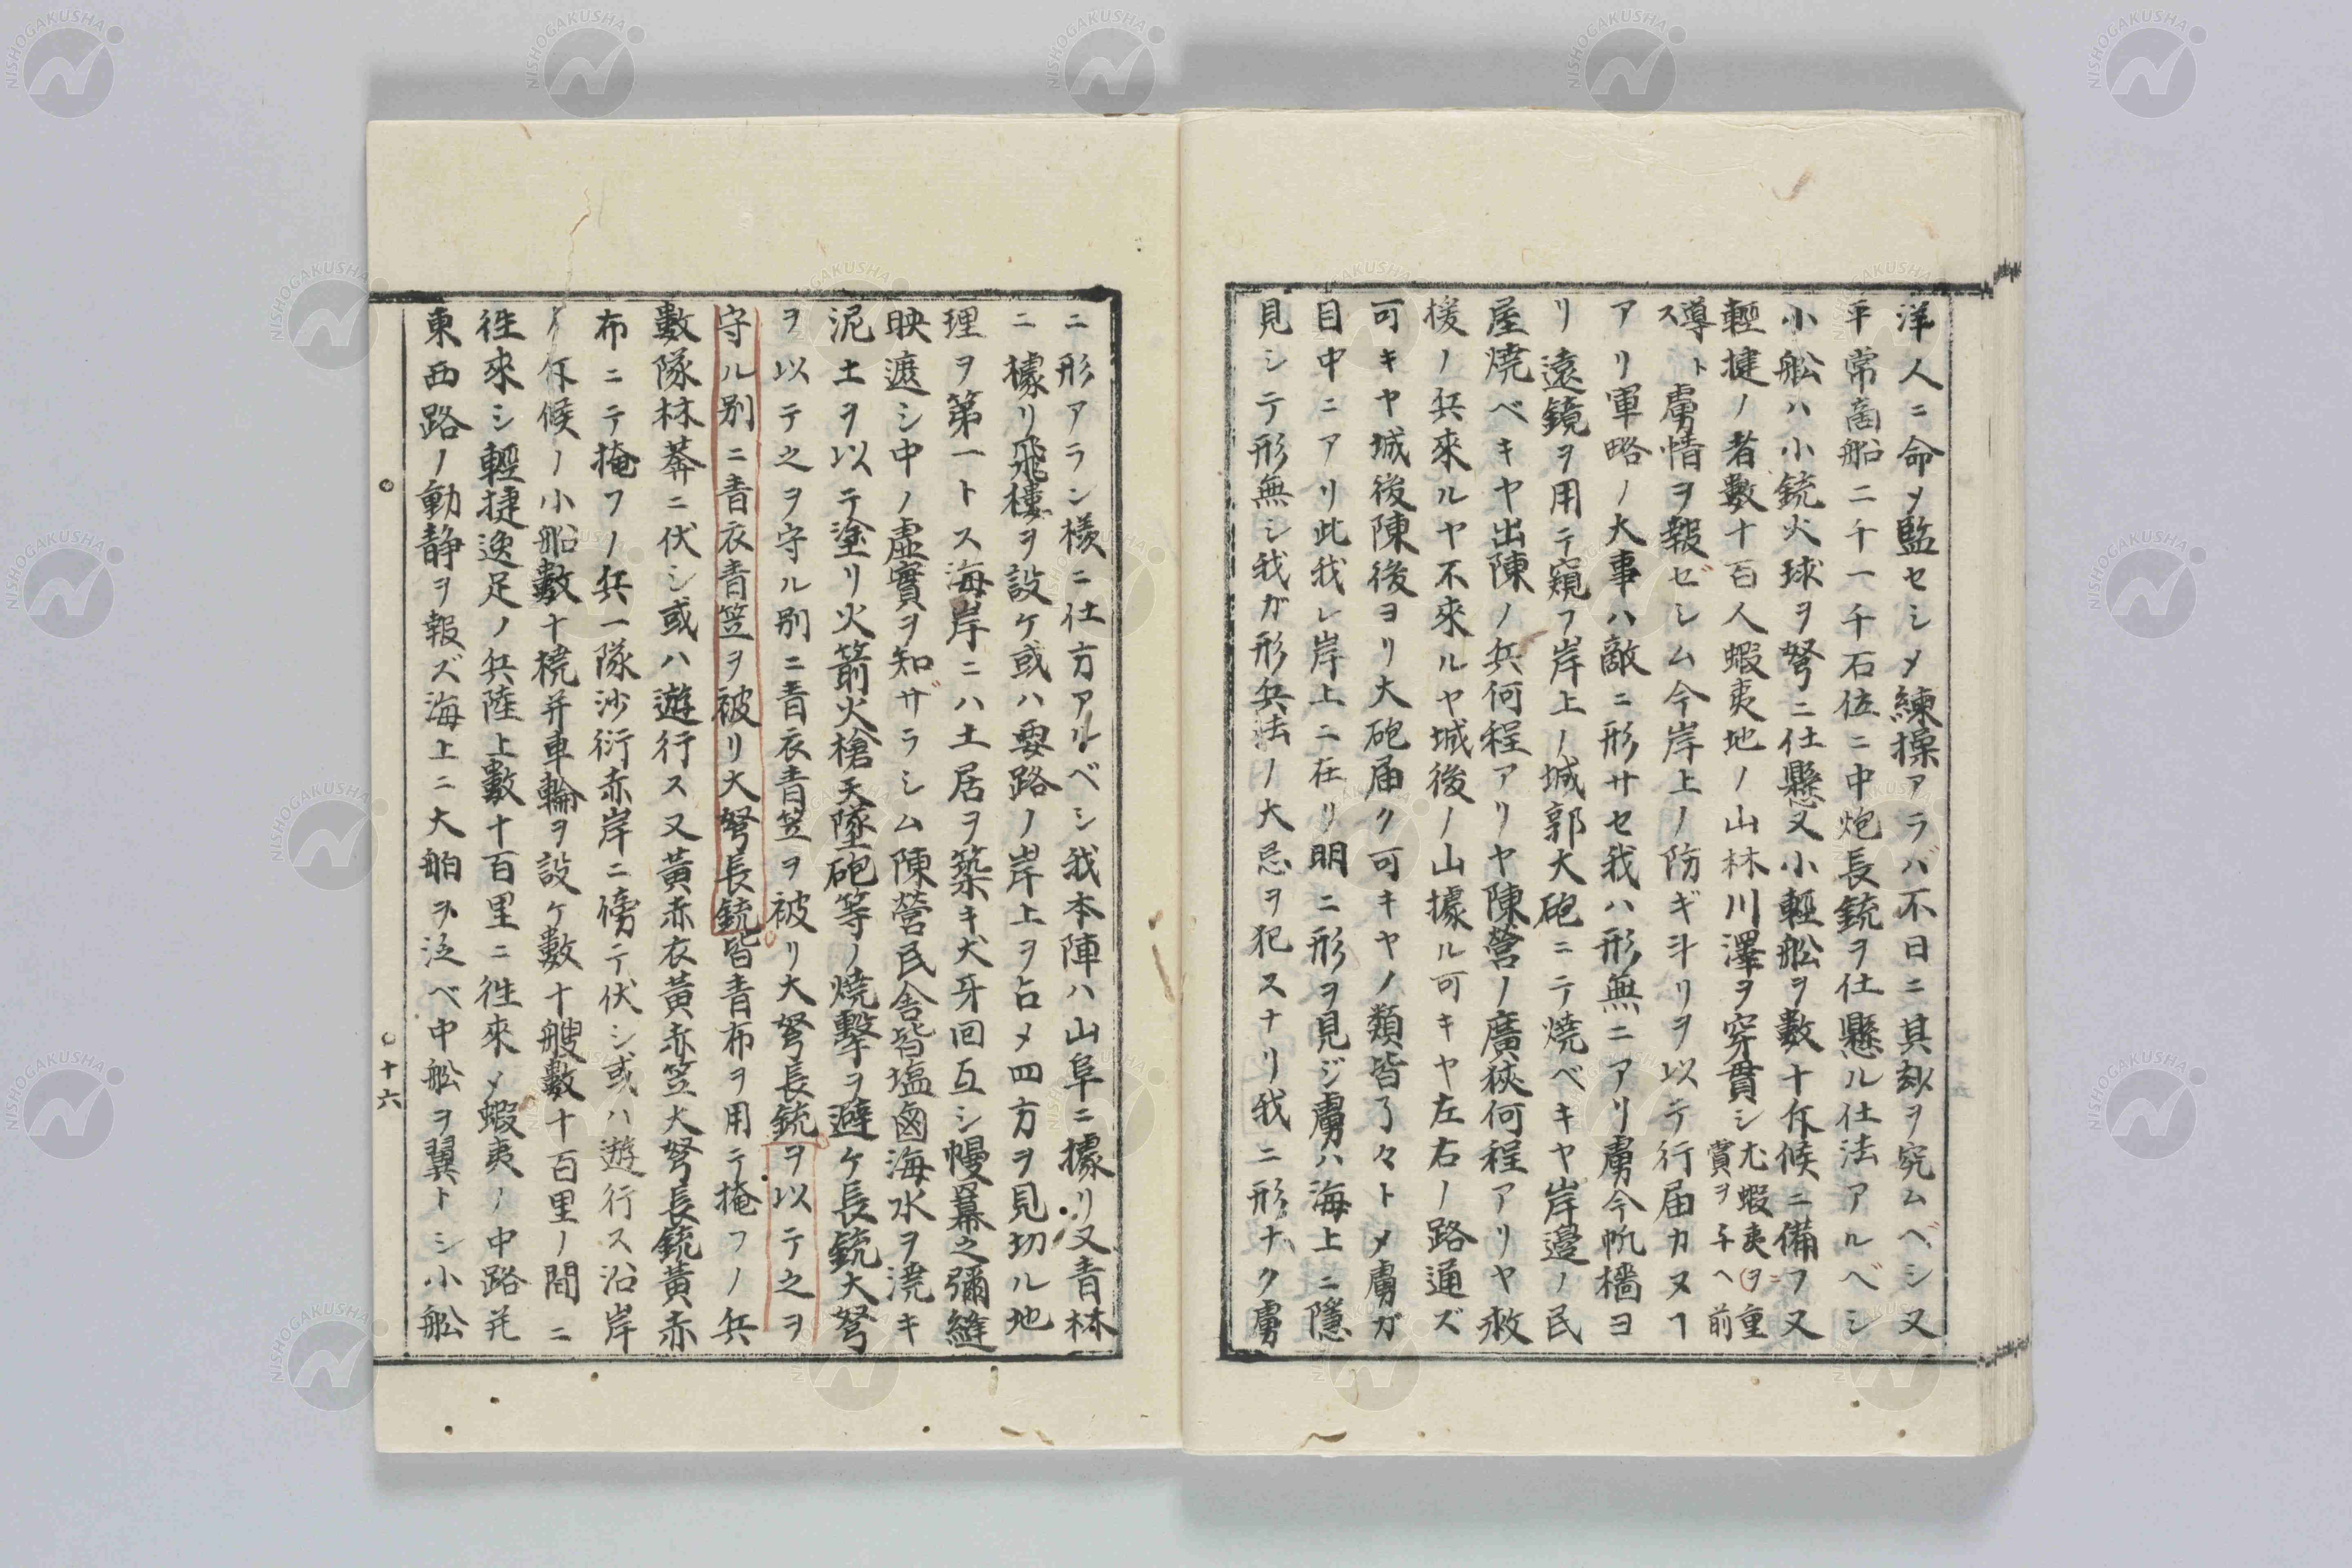 洋人ニ命メ監セシメ練操アラバ不日ニ其妙ヲ究ムベシ又
平常商船二千一千石位ニ中炮長銃ヲ仕懸ル仕法アルベシ
小舩ハ小銃火球ヲ弩ニ仕懸又小輕舩ヲ數十斥候ニ備フ又
輕捷ノ者數十百人蝦夷地ノ山林川澤ヲ穿貫シ尤蝦夷ヲ重賞ヲ予ヘ前
導トス虜情ヲ報ゼシム今岸上ノ防ギ斗リヲ以テ行届カヌヿ
アリ軍略ノ大事ハ敵ニ形サセ我ハ形無ニアリ虜今帆檣ヨ
リ遠鏡ヲ用テ窺フ岸上ノ城郭大砲ニテ焼ベキヤ岸邊ノ民
屋焼ベキヤ出陳ノ兵何程アリヤ陳營ノ廣狹何程アリヤ救
援ノ兵來ルヤ不來ルヤ城後ノ山據ル可キヤ左右ノ路通ズ
可キヤ城後陳後ヨリ大砲届ク可キヤノ類皆了々トメ虜ガ
目中ニアリ此我レ岸上ニ在リ明ニ形ヲ見ジ虜ハ海上ニ隱
見シテ形無シ我ガ形兵法ノ大忌ヲ犯スナリ我ニ形ナク虜
ニ形アラン樣ニ仕方アルベシ我本陣ハ山阜ニ據リ又青林
ニ據リ飛樓ヲ設ケ或ハ要路ノ岸上ヲ占メ四方ヲ見切ル地
理ヲ第一トス海岸ニハ土居ヲ築キ犬牙回互シ幔幕之彌縫
映遮シ中ノ虛實ヲ知ザラシム陳營民舎皆塩鹵海水ヲ澆キ
泥土ヲ以テ塗リ火箭火槍天墜砲等ノ焼擊ヲ避ケ長銃大弩
ヲ以テ之ヲ守ル別ニ青衣青笠ヲ被リ大弩長銃ヲ以テ之ヲ
守ル別ニ青衣青笠ヲ被リ大弩長銃皆青布ヲ用テ掩フノ兵
數隊林莽ニ伏シ或ハ遊行ス又黃赤衣黃赤笠大弩長銃黃赤
布ニテ掩フノ兵一隊沙衍赤岸ニ傍テ伏シ或ハ遊行ス沿岸
ノ斥候ノ小船數十橈并車輪ヲ設ケ數十艘數十百里ノ間ニ
徃來シ輕捷逸足ノ兵陸上數十百里ニ徃來メ蝦夷ノ中路并
東西路ノ動静ヲ報ズ海上ニ大舶ヲ泛ベ中舩ヲ翼トシ小舩
十六